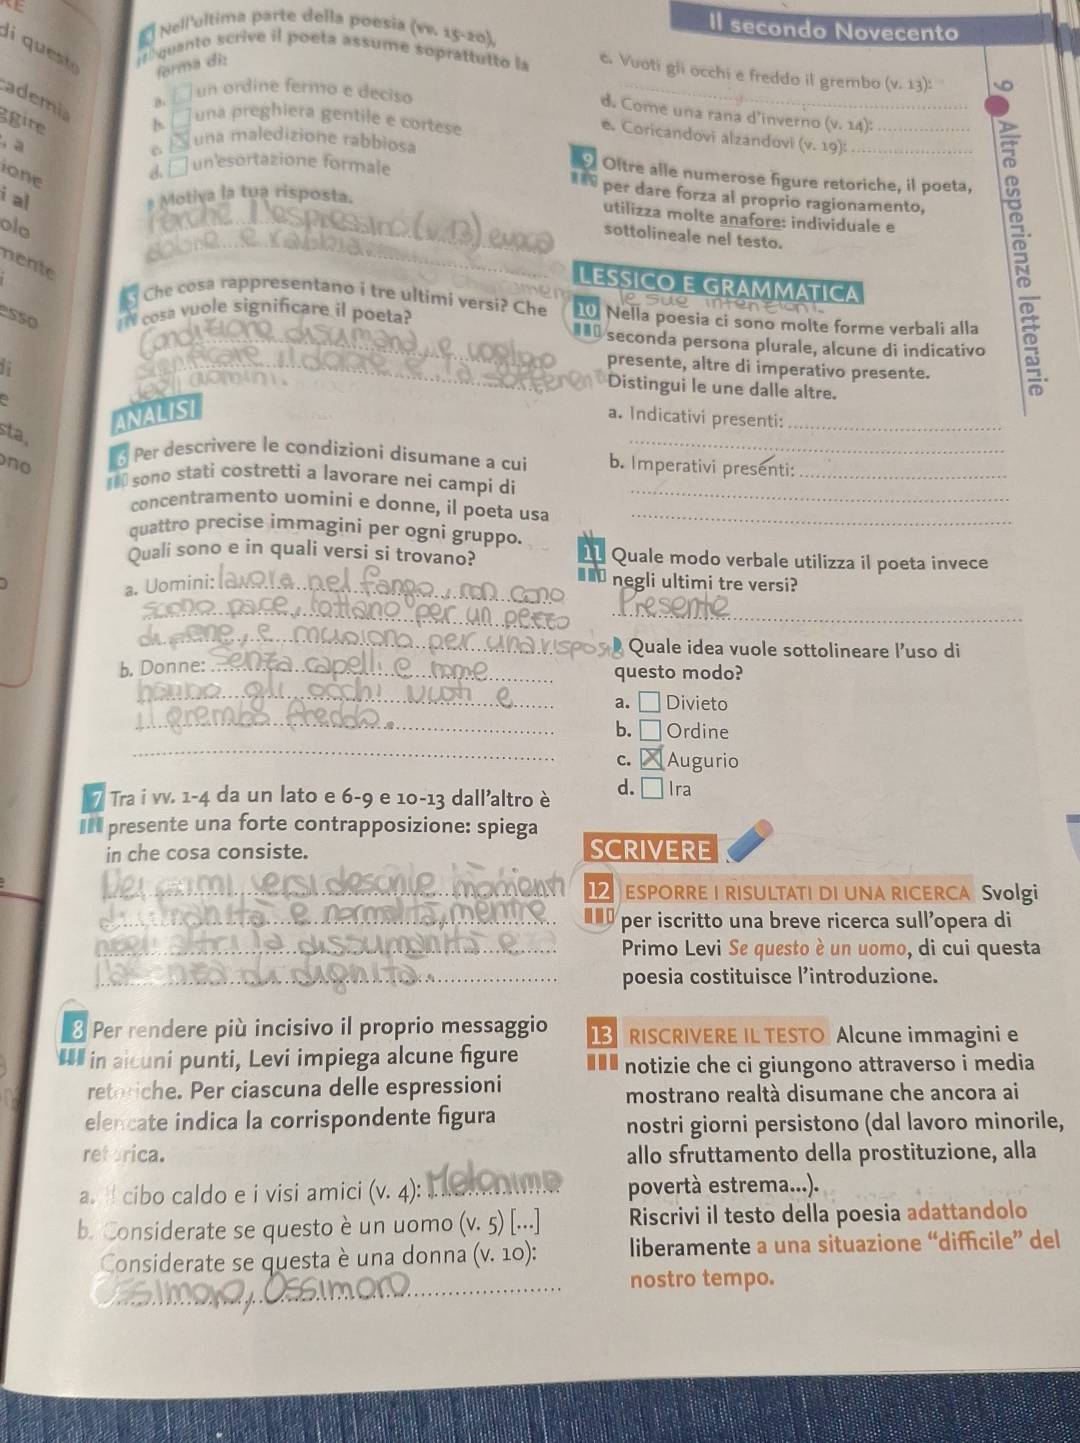 Il secondo Novecento
di questo
cademia
ggire
, a
ione
i al
olo
mente
esso
di
e
sta,
ono
Nell'ultima parte della poesia (vv. 15-20),
quanto scrive il poeta assume soprattutto la
forma di:
a. un ordine fermo e deciso
b. una preghiera gentile e cortese
c. una maledizione rabbiosa
d. un'esortazione formale
Motiva la tua risposta.
Perché l'espressino (v. 13) evoca
dolore e rabbia
5 Che cosa rappresentano i tre ultimi versi? Che
cosa vuole significare il poeta?
Condizione disumane, e voglion
significare il dolore e la sofferen
degli uomini.
ANALISI
6 Per descrivere le condizioni disumane a cui
sono stati costretti a lavorare nei campi di
concentramento uomini e donne, il poeta usa
quattro precise immagini per ogni gruppo.
Quali sono e in quali versi si trovano?
a. Uomini: lavora nel fango, non cono
scono pace, lottano per un pezzo
di pane, e muoiono per una rispos
b. Donne: senza capelli e nome
hanno gli occhi vuoti e
il grembo freddo.
7 Tra i vv. 1-4 da un lato e 6-9 e 10-13 dall'altro è
presente una forte contrapposizione: spiega
in che cosa consiste.
Dei primi versi descrive momenti
di umanità e normalità, mentre
negli altri la dissumanità e
l'assenza di dignità.
8 Per rendere più incisivo il proprio messaggio
in alcuni punti, Levi impiega alcune figure
retoriche. Per ciascuna delle espressioni
elencate indica la corrispondente figura
retorica.
a. Il cibo caldo e i visi amici (v. 4): Metonimo
b. Considerate se questo è un uomo (v. 5) [...]
Considerate se questa è una donna (v. 10):
Ossimoro, Ossimoro
c. Vuoti gli occhi e freddo il grembo (v. 13):
d. Come una rana d'inverno (v. 14):
e. Coricandovi alzandovi (v. 19):
9 Oltre alle numerose figure retoriche, il poeta,
per dare forza al proprio ragionamento,
utilizza molte anafore: individuale e
sottolineale nel testo.
LESSICO E GRAMMATICA
le sue intenzioni.
10 Nella poesia ci sono molte forme verbali alla
seconda persona plurale, alcune di indicativo
presente, altre di imperativo presente.
Distingui le une dalle altre.
a. Indicativi presenti:
b. Imperativi presenti:
11 Quale modo verbale utilizza il poeta invece
negli ultimi tre versi?
Presente
Quale idea vuole sottolineare l'uso di
questo modo?
a. Divieto
b. Ordine
c. Augurio
d. Ira
SCRIVERE
12 ESPORRE I RISULTATI DI UNA RICERCA Svolgi
per iscritto una breve ricerca sull'opera di
Primo Levi Se questo è un uomo, di cui questa
poesia costituisce l'introduzione.
13 RISCRIVERE IL TESTO Alcune immagini e
notizie che ci giungono attraverso i media
mostrano realtà disumane che ancora ai
nostri giorni persistono (dal lavoro minorile,
allo sfruttamento della prostituzione, alla
povertà estrema...).
Riscrivi il testo della poesia adattandolo
liberamente a una situazione “difficile” del
nostro tempo.
9 Altre esperienze letterarie